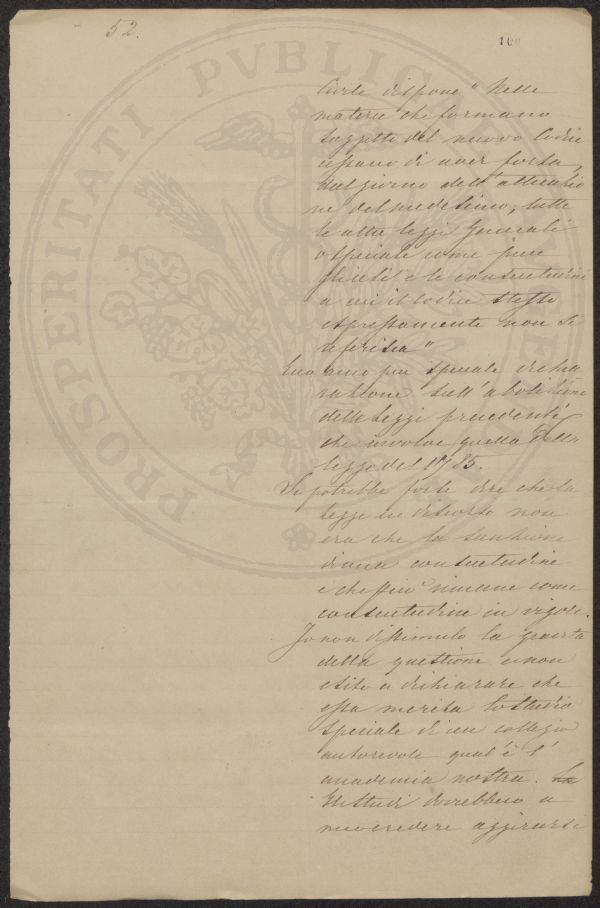 52.
100
Civile dispone "Nelle
materie che formano
soggetto del nuovo Codice
cessano di aver forza
dal giorno dell'attuazio
ne del medesimo, tutte
le altre leggi generali
o speciali come pure
gli usi e le consuetudini
a cui il Codice stesso
espressamente non si
riferisca"
più speciale dichia
razione sull'abolizione
delle leggi precedenti
che involve quella della
legge del 1785.
Si potrebbe forse dire che la
legge in discorso non
era che la sanzione
di una consuetudine
e che perciò rimane come
consuetudine in vigore.
Io non dissimulo la gravità
della questione e non
esito a dichiarare che
essa merita lo studio
speciale di un collegio
autorevole qual'è l'
accademia nostra.
Gli studi dovrebbero a
mio credere aggirarsi
PROSPERITATI PVBLICA